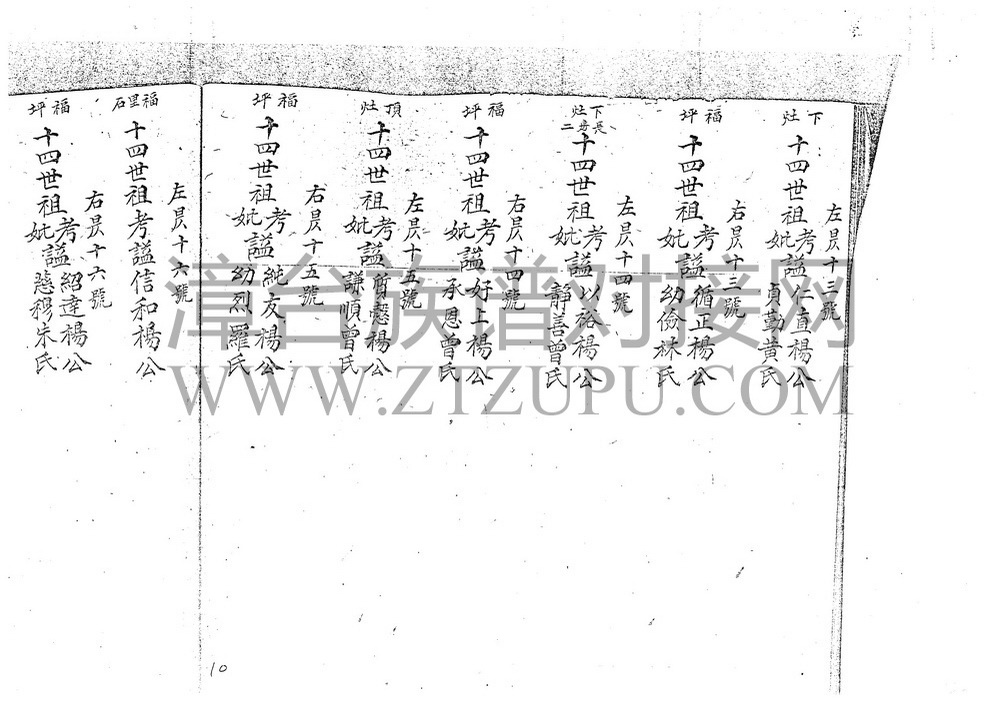 下灶
左昃十三號
十四世祖考妣謚仁直楊公貞勤黃氏
福坪
右昃十三號
十四世祖考妣謚循正楊公幼儉林氏
下灶長房二
左昃十四號
十四世祖考妣謚以裕楊公靜善曾氏
福坪
右昃十四號
十四世祖考妣謚好上楊公承恩曾氏
頂灶
左昃十五號
十四世祖考妣謚質慤楊公謙順曾氏
福坪
右昃十五號
十四世祖考妣謚純友楊公幼烈羅氏
福里石
左昃十六號
十四世祖考謚信和楊公
福坪
右昃十六號
十四世祖考妣謚紹達楊公慈穆朱氏
10
漳台族谱对接网
WWW.ZTZUPU.COM